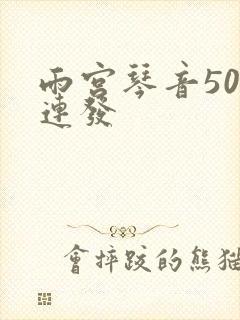 雨宮琴音50
連發
會摔跤的熊猫